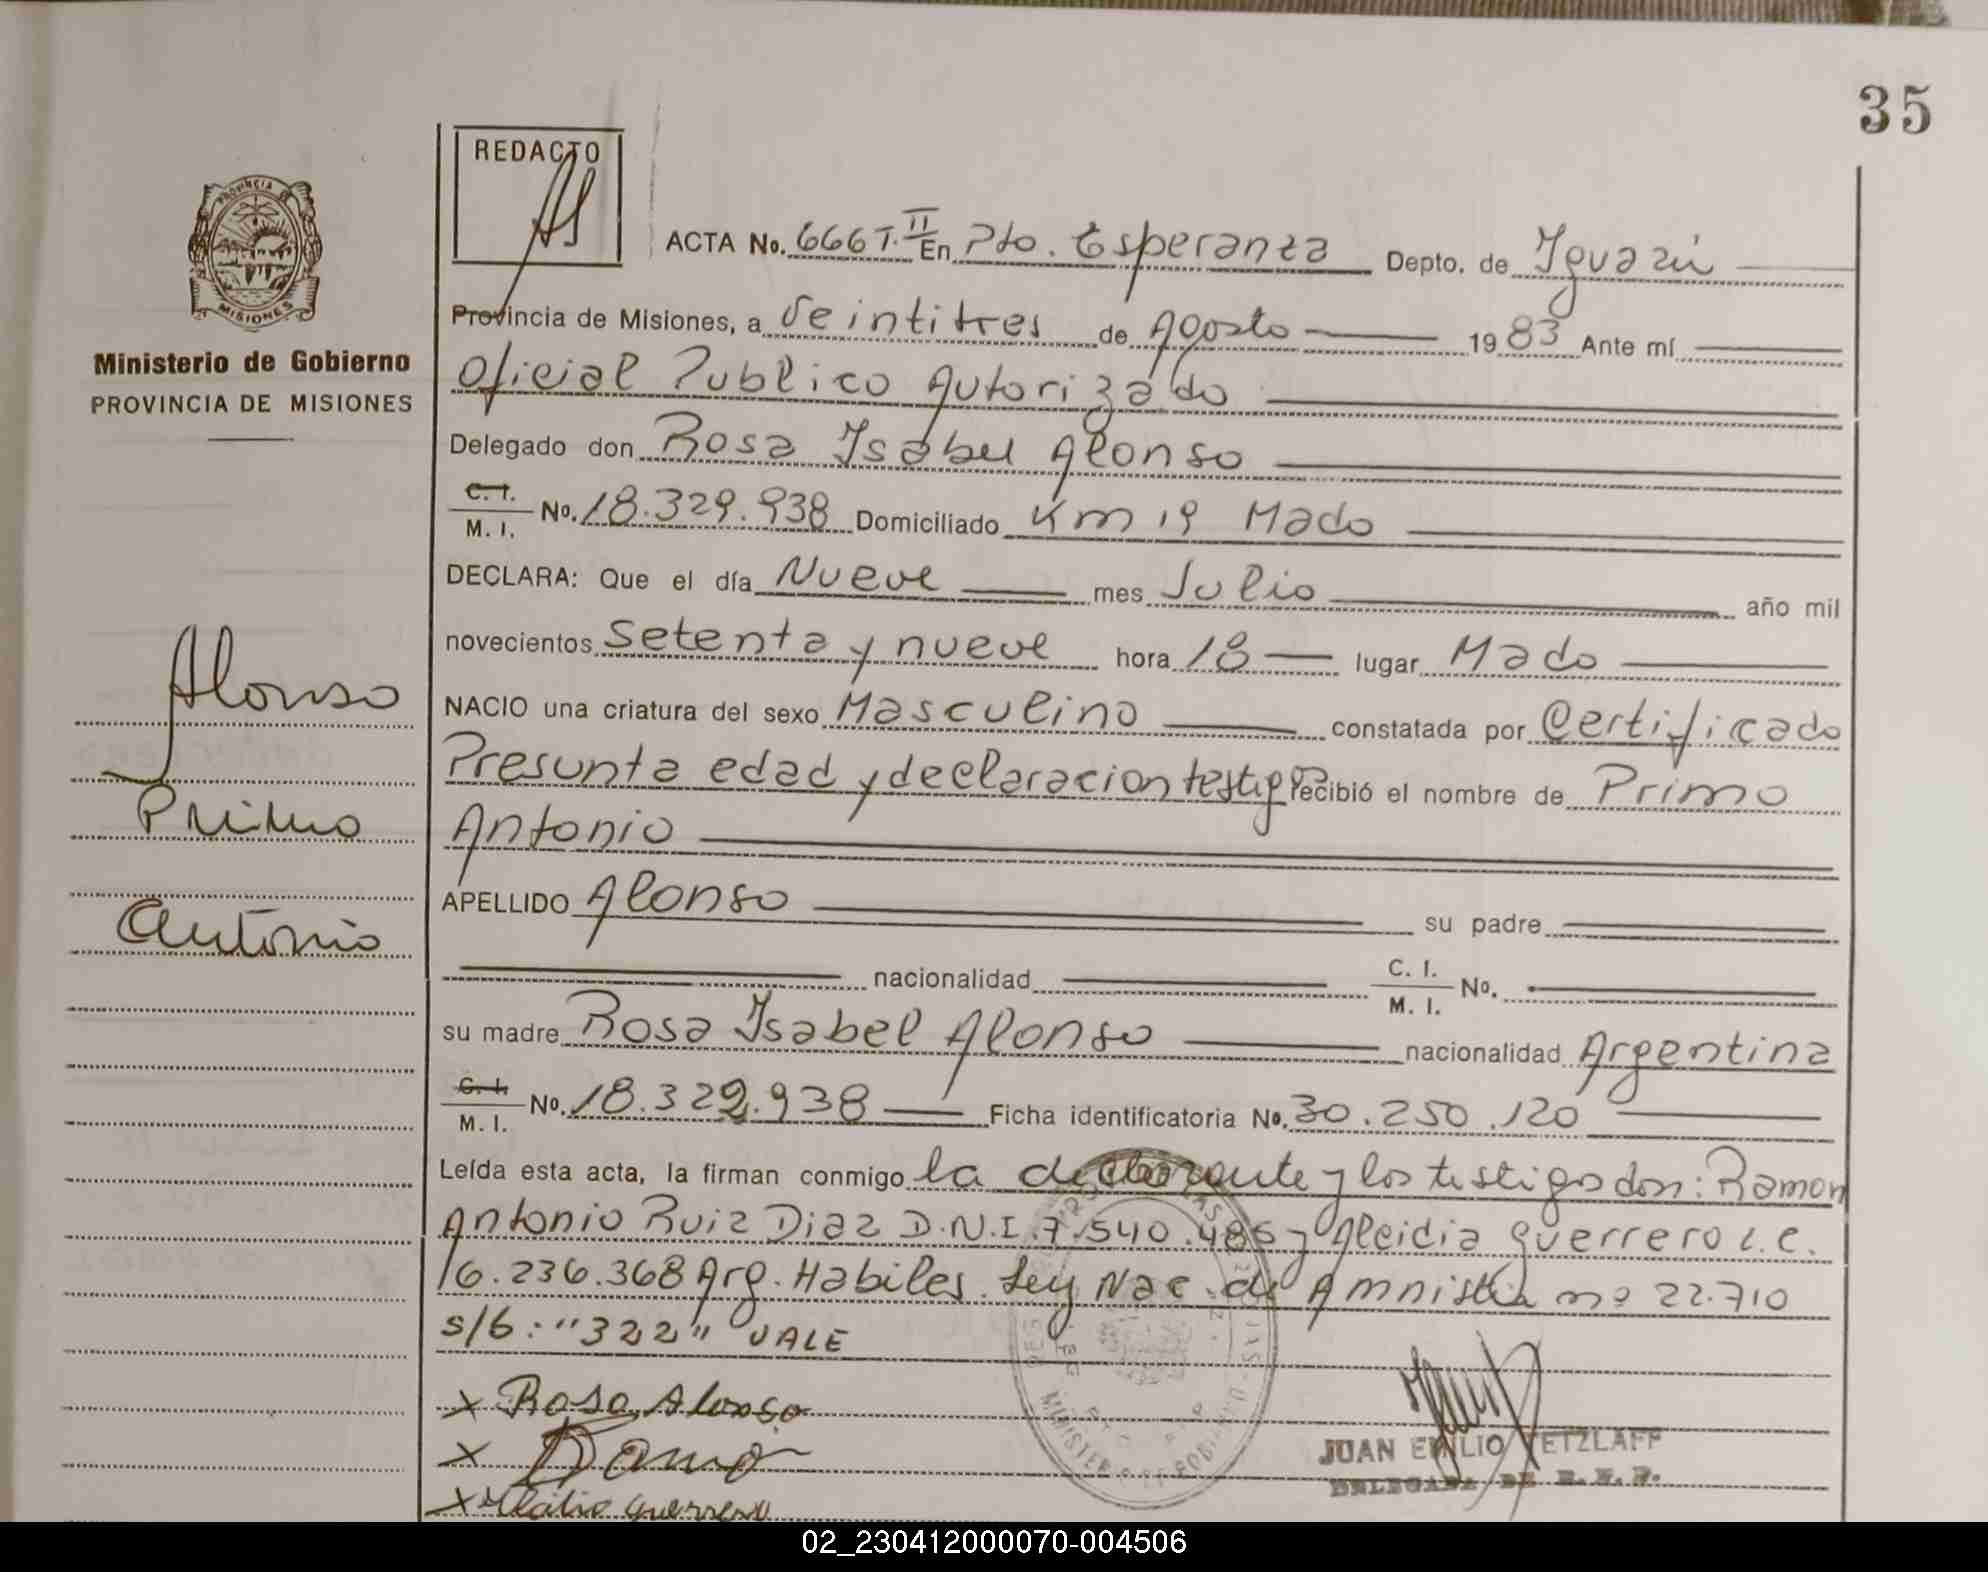 35
REDACTO
PROVINCIA DE
MISIONES
Ministerio de Gobierno
PROVINCIA DE MISIONES
ACTA No. 666 T. II En Pto. Esperanza Depto. de Iguazú
Provincia de Misiones, a Veintitres de Agosto 1983 Ante mí
Oficial Publico Autorizado
Delegado don Rosa Isabel Alonso
C. I. M. I. No. 18.329.938 Domiciliado Km 19 Mado
DECLARA: Que el día Nueve mes Julio año mil
novecientos Setenta y nueve hora 18 lugar Mado
NACIO una criatura del sexo Masculino constatada por Certificado
Presunta edad y declaracion testigo recibió el nombre de Primo
Antonio
APELLIDO Alonso su padre
nacionalidad C. I. M. I. No.
su madre Rosa Isabel Alonso nacionalidad Argentina
C. I. M. I. No. 18.322.938 Ficha identificatoria No. 30.250.120
Leída esta acta, la firman conmigo la declarante y los testigos don: Ramon
Antonio Ruiz Diaz D.N.I. 7.540.485 y Alcidia Guerrero L.C.
16.236.368 Arg. Habiles. Ley Nac. de Amnistia nº 22.710
s/b: "322" VALE
Alonso
Primo
Antonio
x Rosa Alonso
x
x Guerrero
JUAN EMILIO TETZLAFF
02_230412000070-004506